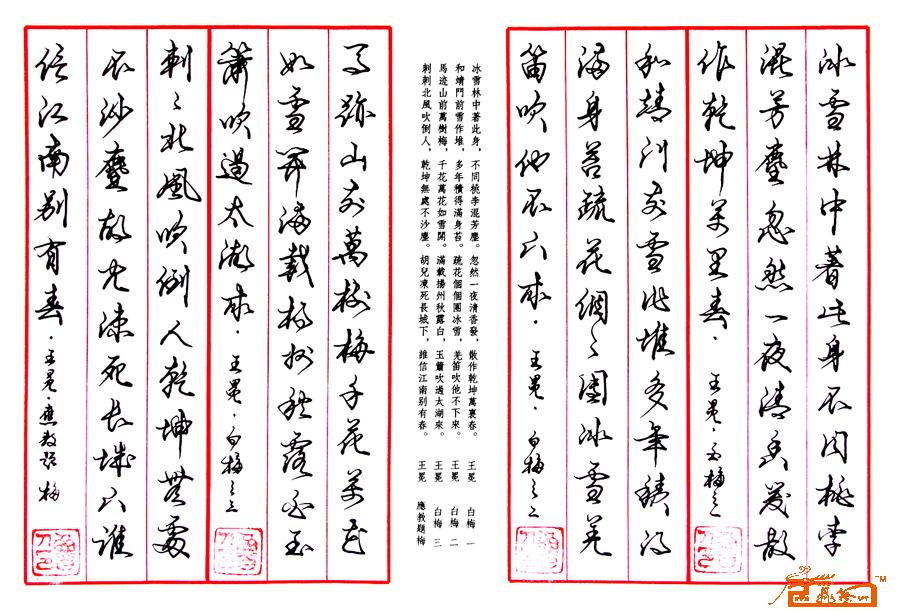 冰雪林中著此身不同桃李
混芳塵忽然一夜清香發散
作乾坤萬里春·王冕·白梅之一
和靖門前雪作堆多年積得
滿身苔疏花個々團冰雪羌
笛吹他不下來·王冕·白梅之二
冰雪林中著此身，不同桃李混芳塵。忽然一夜清香發，散作乾坤萬裏春。 王冕 白梅 一
和靖門前雪作堆，多年積得滿身苔。疏花個個團冰雪，羌笛吹他不下來。 王冕 白梅 二
馬迹山前萬樹梅，千花萬花如雪開。滿載揚州秋露白，玉簫吹過太湖來。 王冕 白梅 三
刺刺北風吹倒人，乾坤無處不沙塵。胡兒凍死長城下，誰信江南别有春。 王冕 應教題梅
馬跡山前萬樹梅千花萬花
如雪開滿載揚州秋露白玉
簫吹過太湖來·王冕·白梅之三
刺々北風吹倒人乾坤無處
不沙塵胡兒凍死長城下誰
信江南别有春·王冕·應教題梅